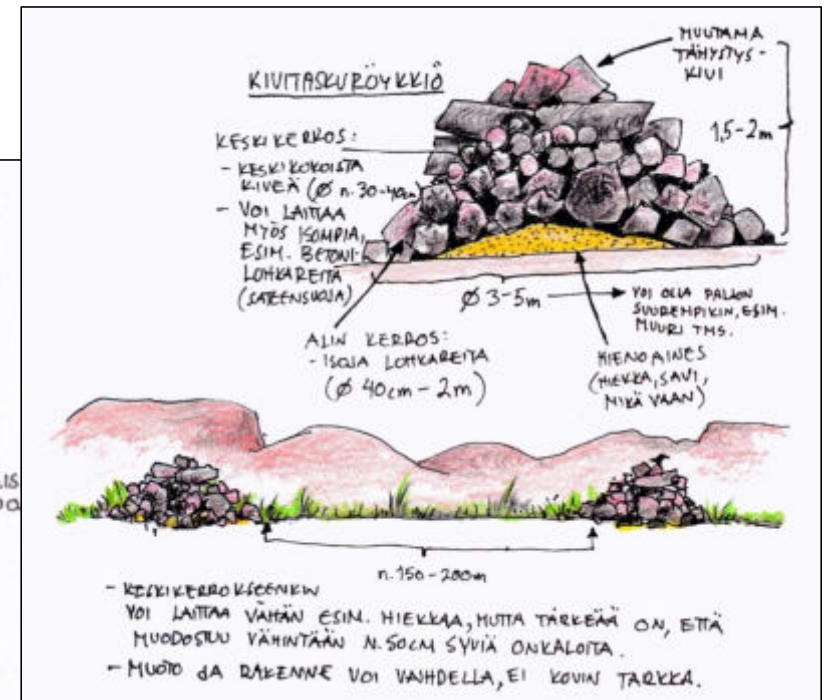 KIVITASKURÖYKKIÖ
MUUTAMA
TÄHYSTYS-
KIVI
1,5-2m
KESKIKERROS:
- KESKIKOKOISTA
KIVEÄ (Ø n. 30-40cm)
- VOI LAITTAA
MYÖS ISOMPIA,
ESIM. BETONI-
LOHKAREITA
(SATEENSUOJA)
Ø 3-5m
VOI OLLA PALJON
SUUREMPIKIN, ESIM.
MUURI TMS.
ALIN KERROS:
- ISOJA LOHKAREITA
(Ø 40cm - 2m)
HIENOAINES
(HIEKKA, SAVI,
MIKÄ VAAN)
n. 150-200m
- KESKIKERROKSEENKIN
VOI LAITTAA VÄHÄN ESIM. HIEKKAA, MUTTA TÄRKEÄÄ ON, ETTÄ
MUODOSTUU VÄHINTÄÄN N. 50CM SYVIÄ ONKALOITA.
- MUOTO JA RAKENNE VOI VAIHDELLA, EI KOVIN TARKKA.